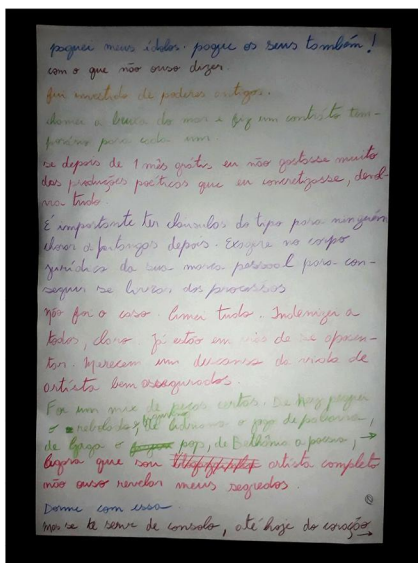 paguei meus ídolos. pague os seus também!
com o que não ouso dizer.
fui investido de poderes antigos.
chamei a bruxa do mar e fiz um contrato tem-
porário para cada um
se depois de 1 mês grátis eu não gostasse muito
das produções poéticas que eu concretizasse, devol-
via tudo
É importante ter cláusulas do tipo para ninguém
chorar as pitangas depois. Exagere no corpo
jurídico da sua marca pessoal para con-
seguir se livrar dos processos
não foi o caso. Amei tudo. Indenizei a
todos, claro. Já estão em vias de se aposen-
tar. Merecem um descanso da vida de
artista bem assegurados.
Foi um mix de peças certas. De Kay peguei
o rebolado, de Adriana o papo de
de Gaga o pop, de Bethânia a poesia, →
Agora que sou artista completo
não ouso revelar meus segredos.
Dorme com essa
mas se te serve de consolo, até hoje do coração →